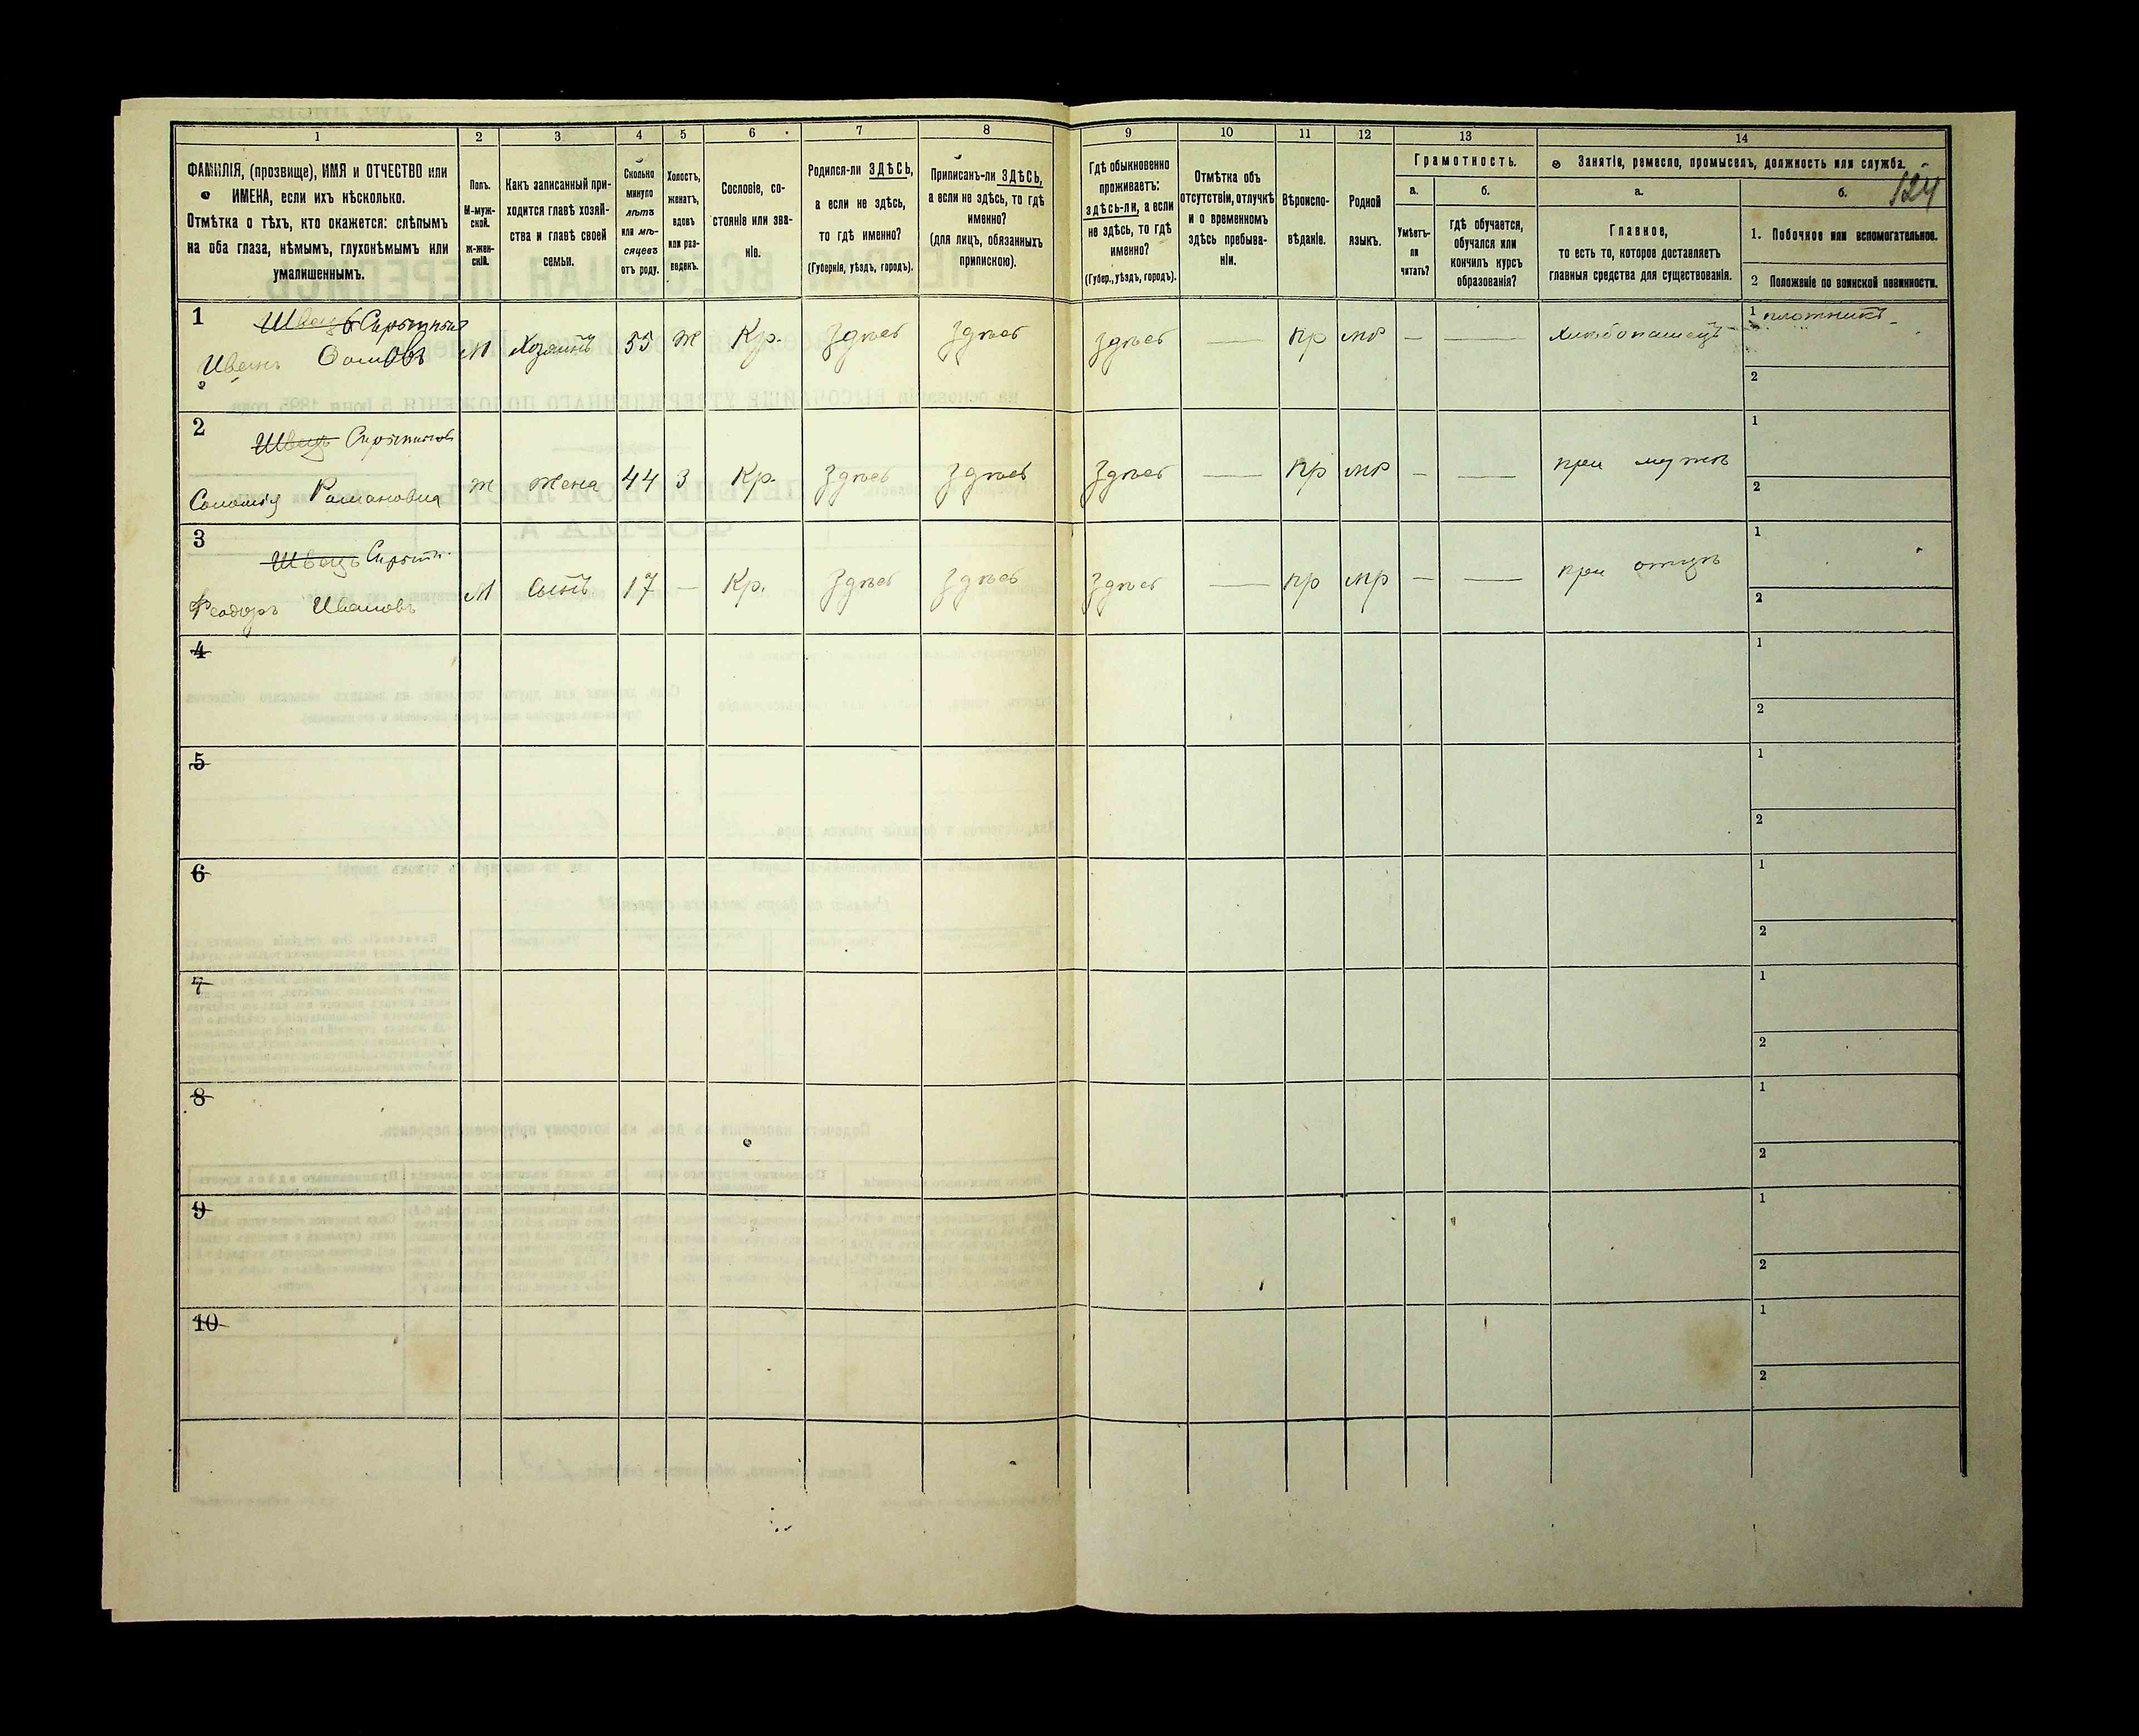 1 2 3 4 5 6 7 8 9 10 11 12 13 14
124
ФАМИЛІЯ, (прозвище), ИМЯ и ОТЧЕСТВО или
ИМЕНА, если ихъ нѣсколько.
Отмѣтка о тѣхъ, кто окажется: слѣпымъ
на оба глаза, нѣмымъ, глухонѣмымъ или
умалишеннымъ.
Полъ.
М-муж-
ской.
ж-жен-
скій.
Какъ записанный при-
ходится главѣ хозяй-
ства и главѣ своей
семьи.
Сколько
минуло
лѣтъ
или мѣ-
сяцевъ
отъ роду.
Холостъ,
женатъ,
вдовъ
или раз-
веденъ.
Сословіе, со-
стояніе или зва-
ніе.
Родился-ли ЗДѢСЬ,
а если не здѣсь,
то гдѣ именно?
(Губернія, уѣздъ, городъ).
Приписанъ-ли ЗДѢСЬ,
а если не здѣсь, то гдѣ
именно?
(для лицъ, обязанныхъ
припискою).
Гдѣ обыкновенно
проживаетъ:
здѣсь-ли, а если
не здѣсь, то гдѣ
именно?
(Губер., уѣздъ, городъ).
Отмѣтка объ
отсутствіи, отлучкѣ
и о временномъ
здѣсь пребыва-
ніи.
Вѣроиспо-
вѣданіе.
Родной
языкъ.
Грамотность.
а.
Умѣетъ-
ли
читать?
б.
гдѣ обучается,
обучался или
кончилъ курсъ
образованія?
Занятіе, ремесло, промыселъ, должность или служба.
а.
Главное,
то есть то, которое доставляетъ
главныя средства для существованія.
б.
1. Побочное или вспомогательное.
2 Положеніе по воинской повинности.
1 Швецъ
Иванъ М Хозяинъ 55 Ж Кр. Здѣсь Здѣсь Здѣсь — пр мр — — Хлѣбопашецъ 1 плотникъ
2
2 Швецъ
Соломія Романовна Ж Жена 44 З Кр. Здѣсь Здѣсь Здѣсь — пр мр — — при мужѣ 1
2
3 Швецъ
Феодоръ Ивановъ М Сынъ 17 — Кр. Здѣсь Здѣсь Здѣсь — пр мр — — при отцѣ 1
2
4 1
2
5 1
2
6 1
2
7 1
2
8 1
2
9 1
2
10 1
2